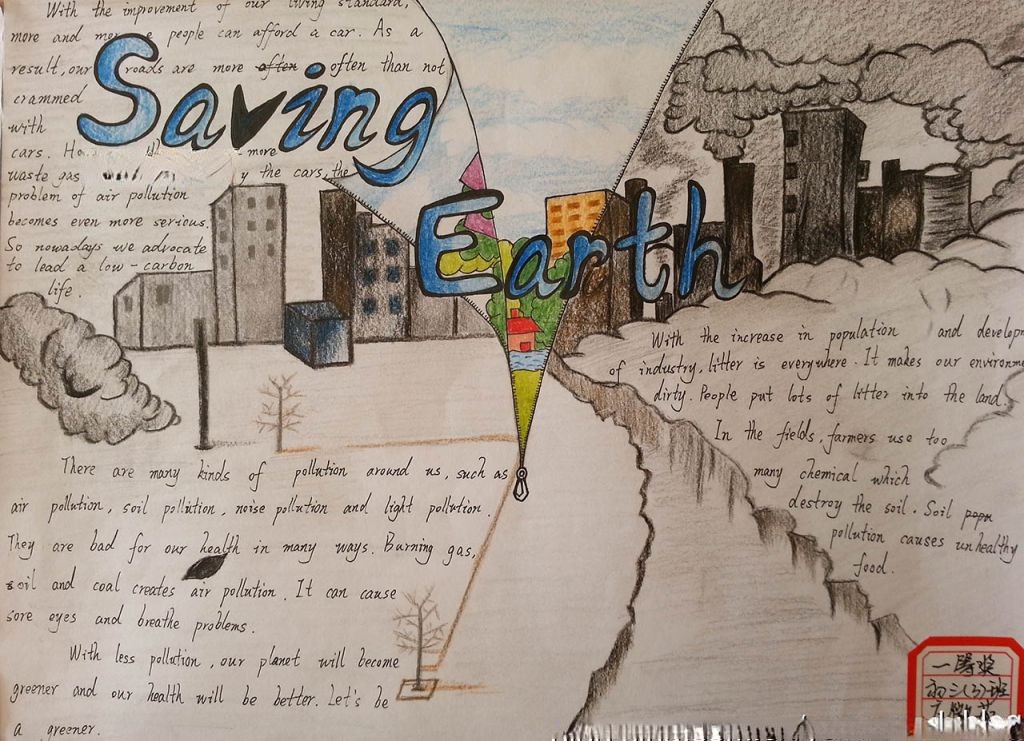 Saving
Earth
With the improvement of our living standard,
more and more people can afford a car. As a
result, our roads are more often often than not
crammed
with
cars. more
waste gas the cars, the
problem of air pollution
becomes even more serious.
So nowadays we advocate
to lead a low-carbon
life.
There are many kinds of pollution around us, such as
air pollution, soil pollution, noise pollution and light pollution.
They are bad for our health in many ways. Burning gas,
soil and coal creates air pollution. It can cause
sore eyes and breathe problems.
With less pollution, our planet will become
greener and our health will be better. Let's be
a greener.
With the increase in population and develop
of industry, litter is everywhere. It makes our environm
dirty. People put lots of litter into the land.
In the fields, farmers use too
many chemical which
destroy the soil. Soil
pollution causes unhealthy
food.
一等奖
初三(3)班